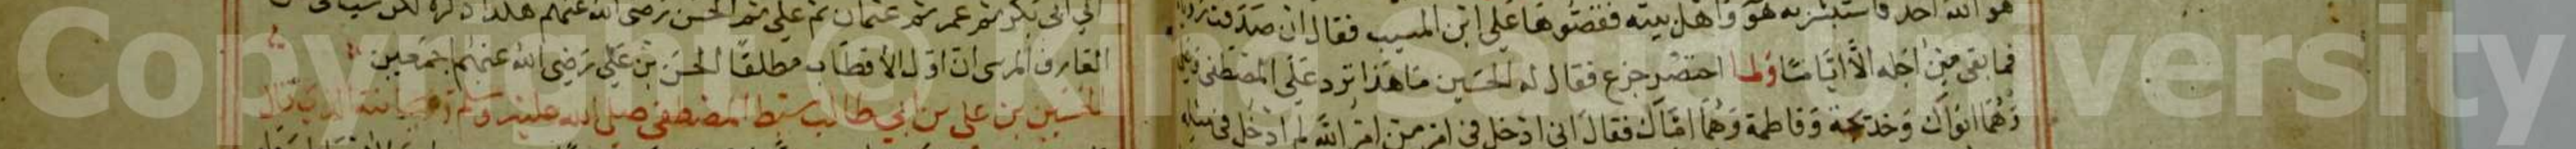 هو الله احد فاستبشر به هو واهل بيته فقصوها على ابن المسيب فقال ان صدقت رؤياه
فما بقى من اجله الا اياما ولما احتضر جزع فقال له الحسين ما هذا ترد على المصطفى وعلي
وهما ابواك وخديجة وفاطمة وهما اماك فقال اني ادخل في امر من امر الله لم ادخل في مثله
ابي بكر ثم عمر ثم عثمان ثم علي ثم الحسن رضى الله عنهم هكذا ذكره لكن
العارف المرسى ان اول الاقطاب مطلقا الحسن بن علي رضي الله عنهم اجمعين
الحسين بن علي بن ابي طالب سبط المصطفى صلى الله عليه وسلم
Copyright © King Saud University